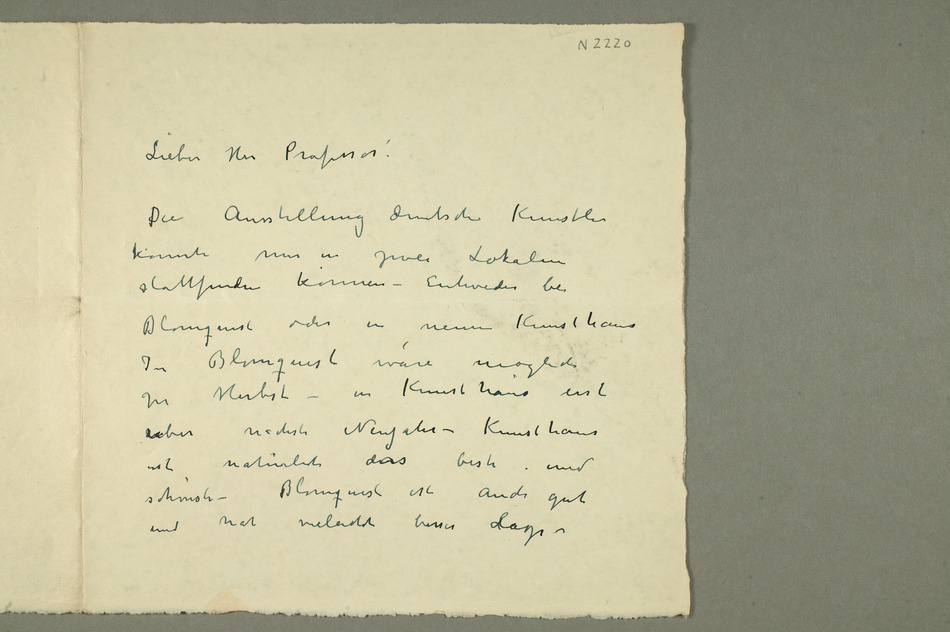 N 2220
Lieber Herr Professor!
Die Ausstellung deutsche Künstler
könnte nur in zwei Lokalen
stattfinden können – Entweder bei
Blomquist oder in neuen Kunsthaus
In Blomquist wäre möglich
zu Herbst – in Kunsthaus erst
über nächste Neujahr – Kunsthaus
ist natürlich das beste und
schönste – Blomquist ist auch gut
und hat vieleicht besser Lage –